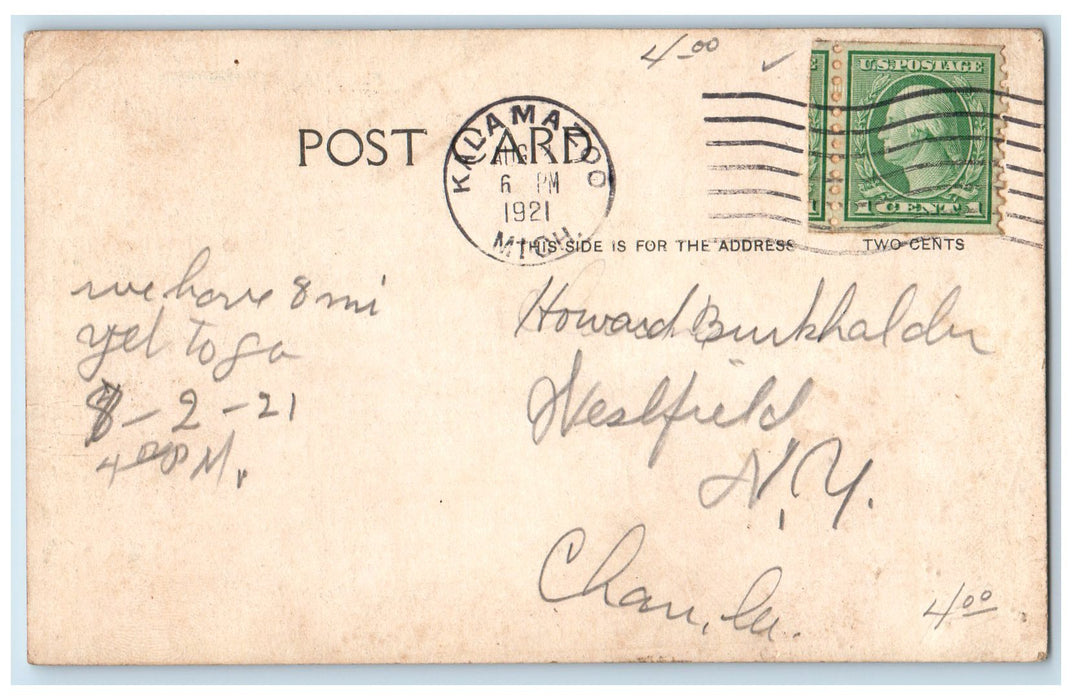 4 00 ✓
U.S. POSTAGE
1 CENT 1
POST CARD
KALAMAZOO
AUG
6 PM
1921
MICH.
THIS SIDE IS FOR THE ADDRESS
TWO CENTS
we have 8 mi
yet to go
8-2-21
4 00 P M.
Howard Burkhalder
Westfield
N.Y.
Chau, Co.
4 00